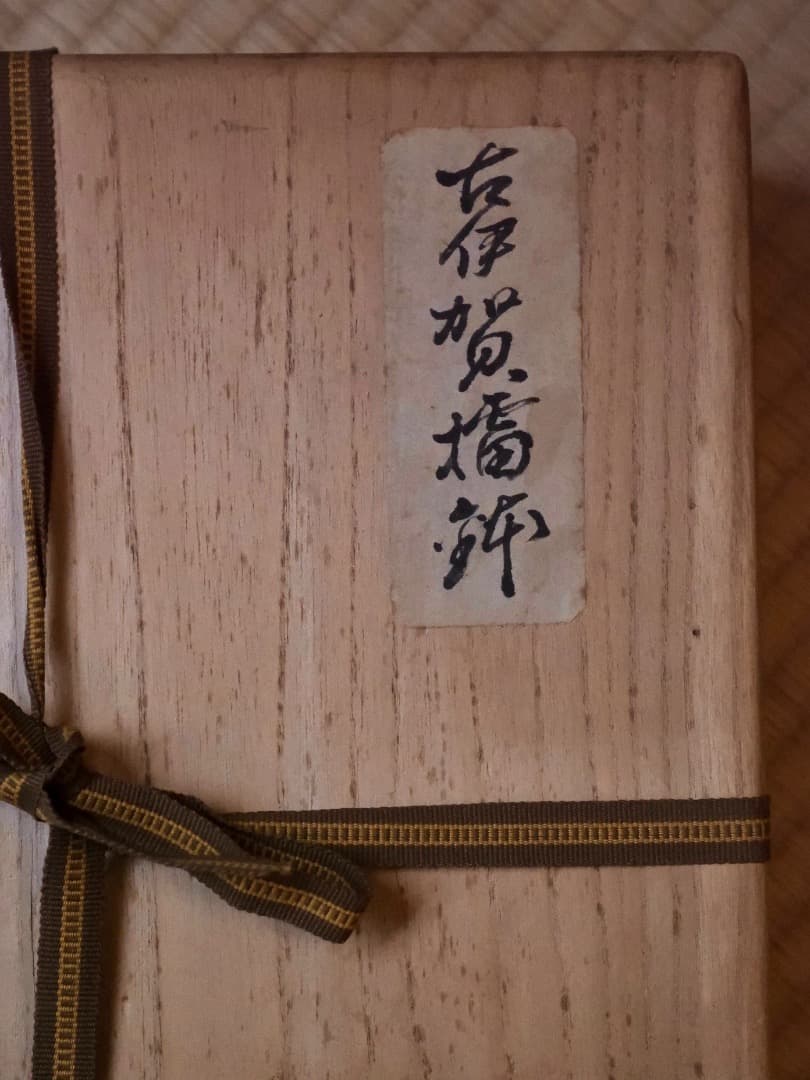 古伊賀擂鉢